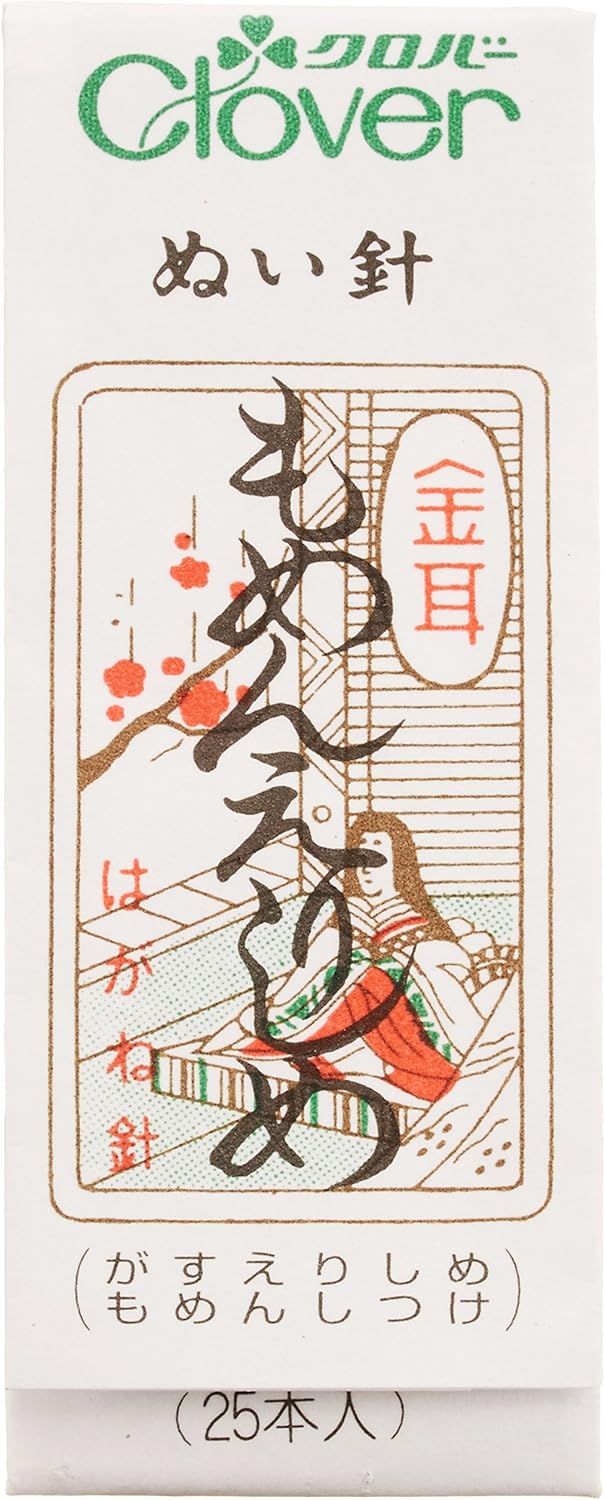 クロバー
Clover
ぬい針
金耳
もめんえりしめ
はがね針
(がすえりしめ
もめんしつけ)
(25本入)